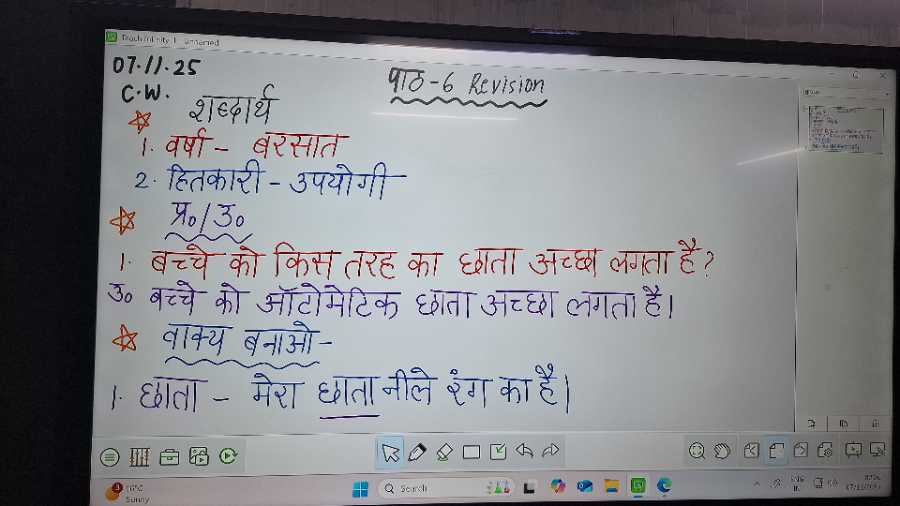 07.11.25
पाठ-6 Revision
C.W.
शब्दार्थ
1. वर्षा - बरसात
2. हितकारी - उपयोगी
प्र०/उ०
1. बच्चे को किस तरह का छाता अच्छा लगता है?
उ० बच्चे को ऑटोमेटिक छाता अच्छा लगता है।
वाक्य बनाओ-
1. छाता - मेरा छाता नीले रंग का है।
Sunny
Search